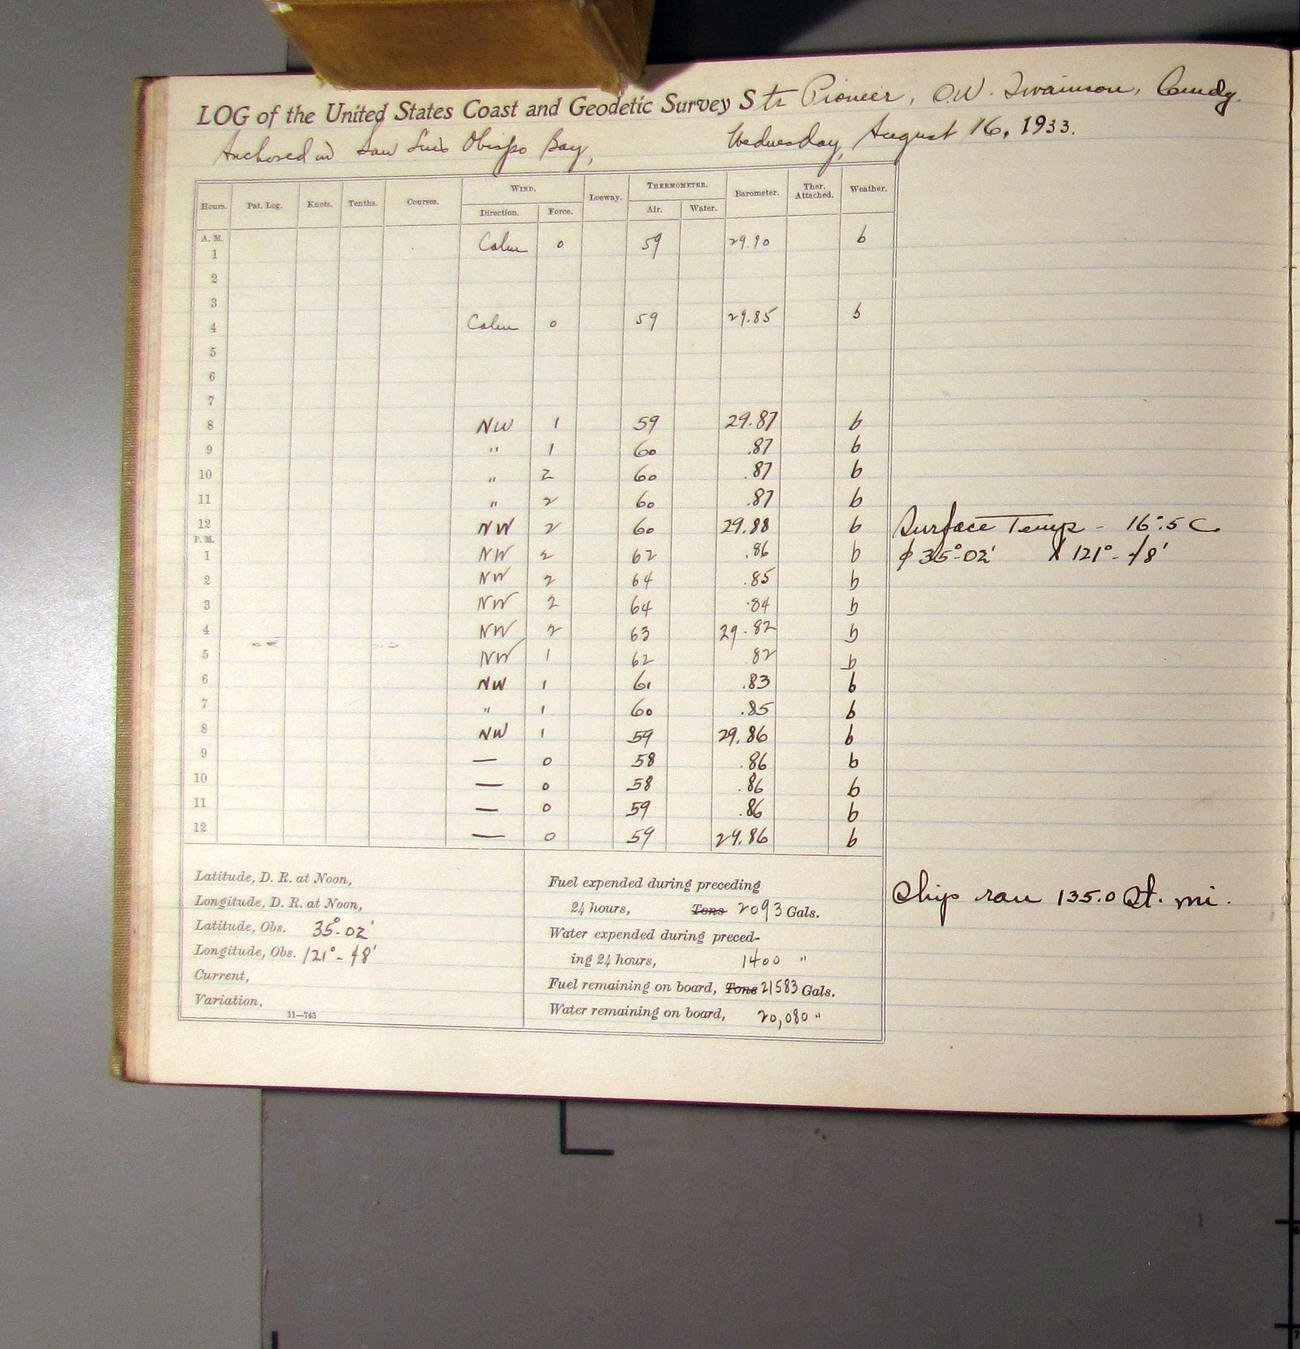 LOG of the United States Coast and Geodetic Survey Str Pioneer, O.W. Swainson, Comdg.
Anchored in San Luis Obispo Bay, Wednesday, August 16, 1933.
Hours. Pat. Log. Knots. Tenths. Courses. WIND. Leeway. THERMOMETER. Barometer. Ther. Attached. Weather.
Direction. Force. Air. Water.
A. M.
1 Calm 0 59 29.90 b
2
3
4 Calm 0 59 29.85 b
5
6
7
8 NW 1 59 29.87 b
9 " 1 60 .87 b
10 " 2 60 .87 b
11 " 2 60 .87 b
12 NW 2 60 29.88 b Surface Temp - 16°.5 C
P. M.
1 NW 2 62 .86 b φ 35°-02' λ 121°-48'
2 NW 2 64 .85 b
3 NW 2 64 .84 b
4 NW 2 63 29.82 b
5 NW 1 62 .82 b
6 NW 1 61 .83 b
7 " 1 60 .85 b
8 NW 1 59 29.86 b
9 — 0 58 .86 b
10 — 0 58 .86 b
11 — 0 59 .86 b
12 — 0 59 29.86 b
Latitude, D. R. at Noon,
Longitude, D. R. at Noon,
Latitude, Obs. 35°-02'
Longitude, Obs. 121°-48'
Current,
Variation,
11—743
Fuel expended during preceding
24 hours, Tons 2093 Gals.
Water expended during preced-
ing 24 hours, 1400 "
Fuel remaining on board, Tons 21583 Gals.
Water remaining on board, 20,080 "
Ship ran 135.0 St. mi.